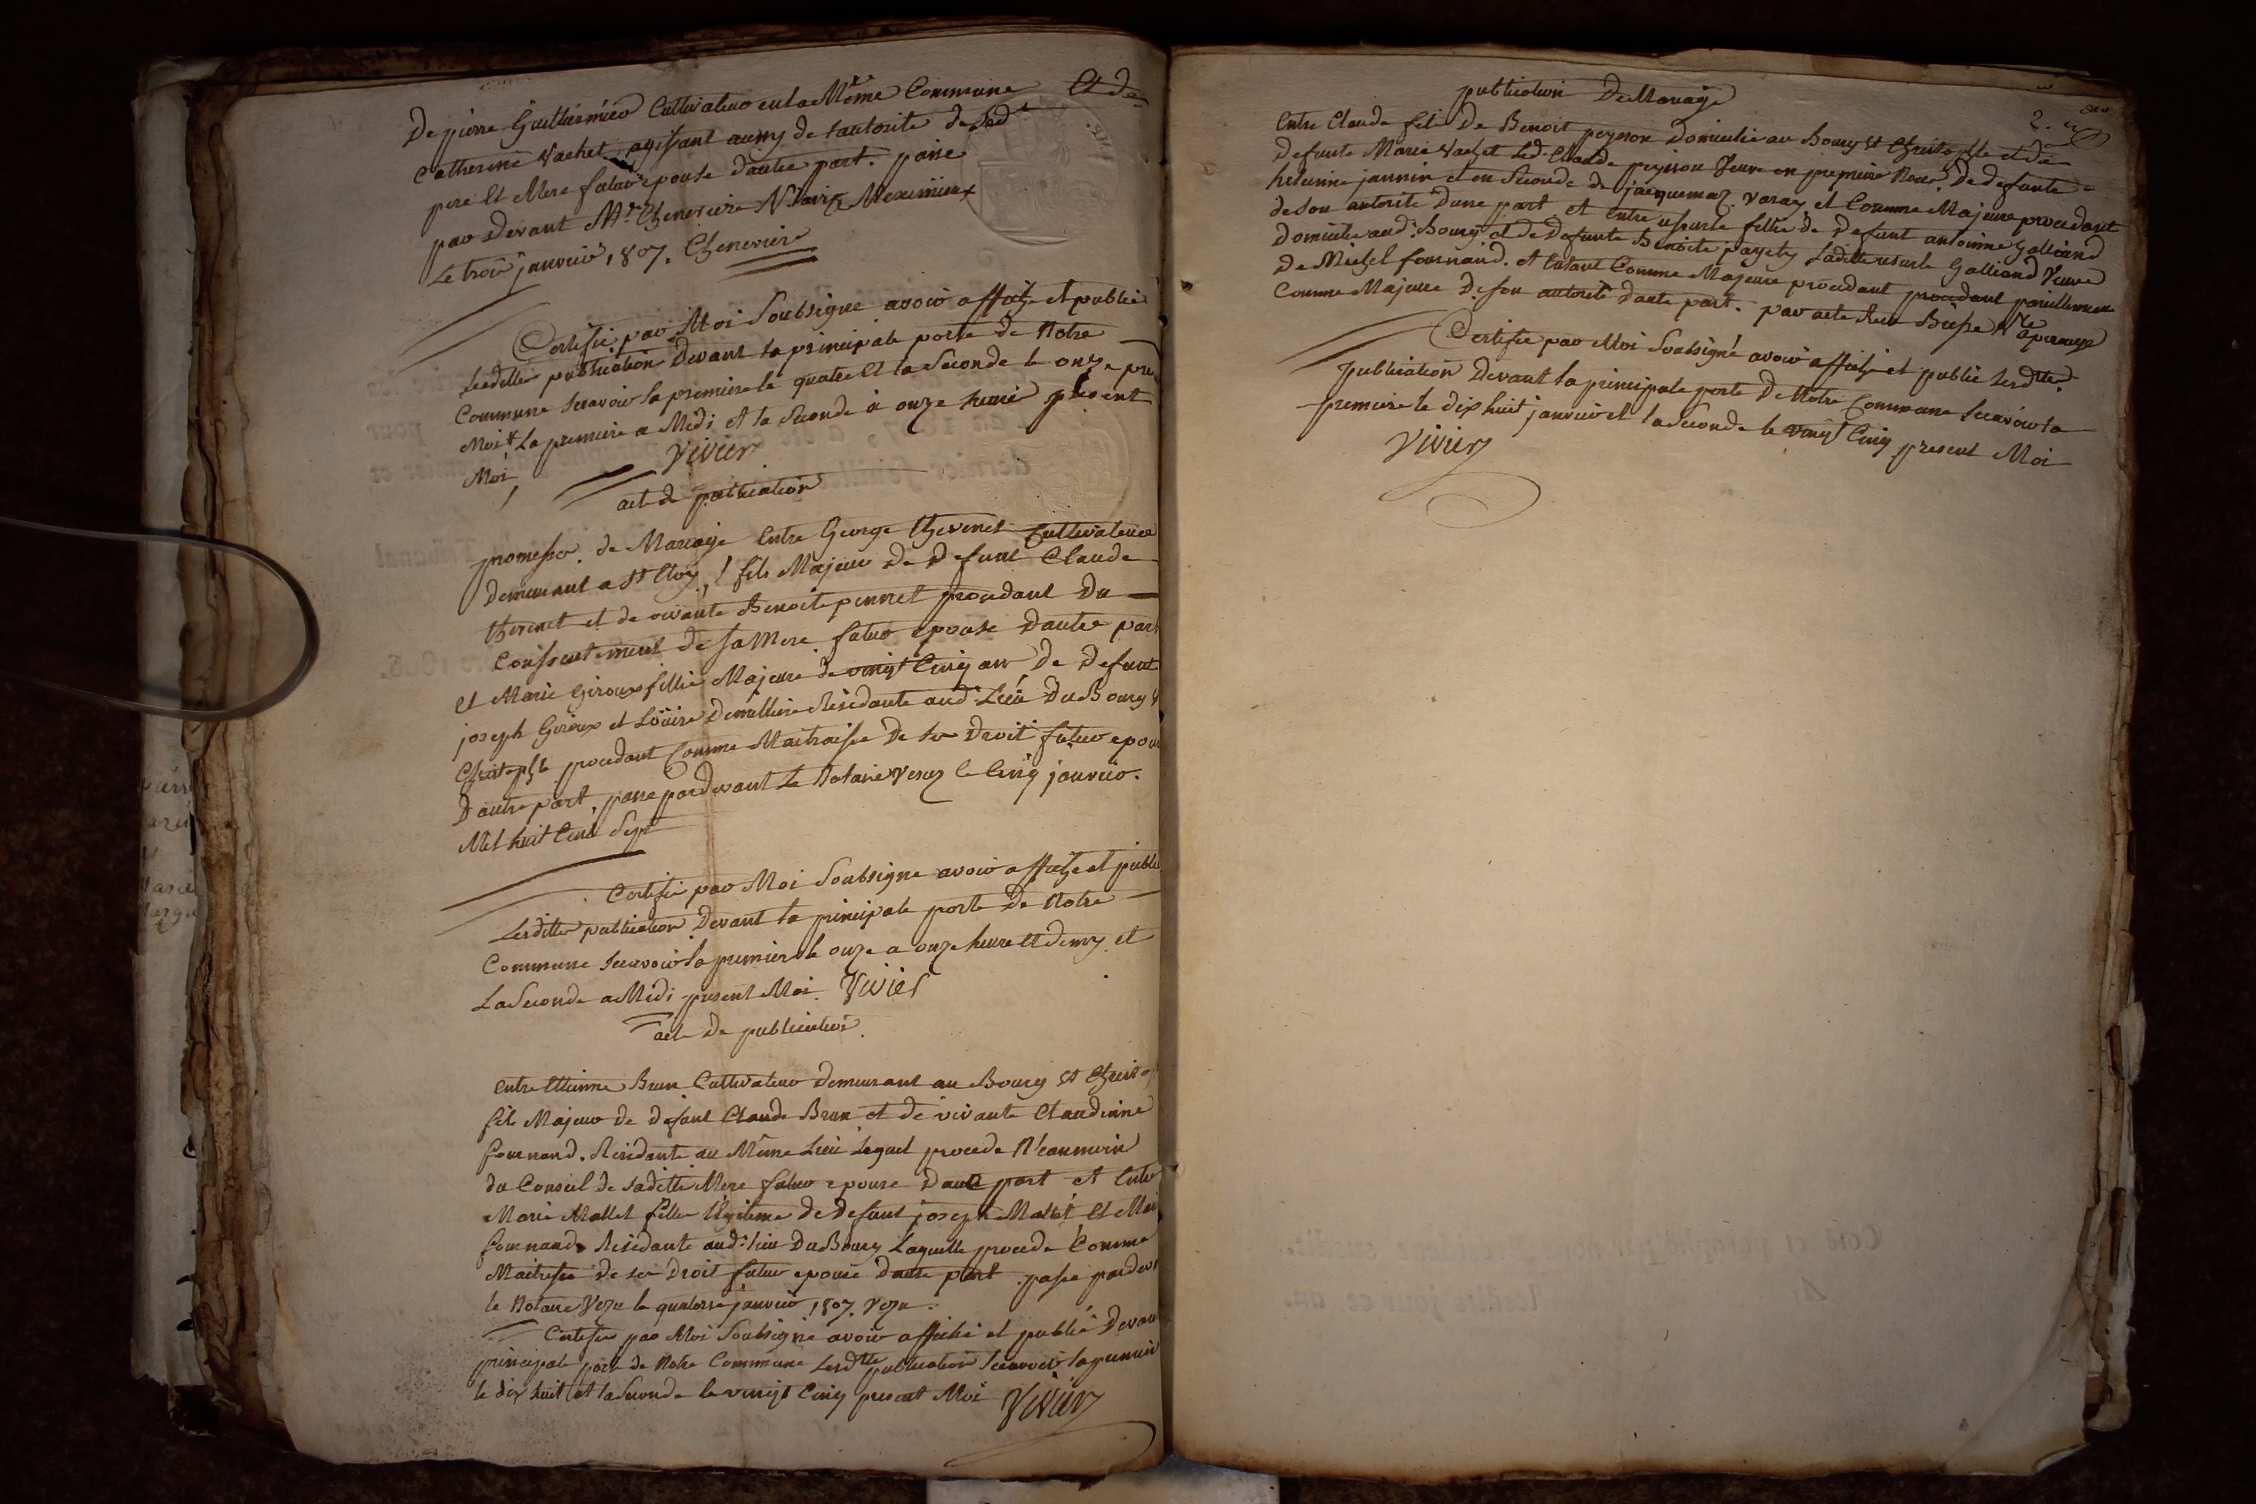 De pierre Guillermier Cultivateur en la Même Commune Et de
Catherine Vachet, agissant aussy de l'autorite de Sed.t
pere Et Mere futur epouse d'autre part. passe
par Devant M.e Chenevière N.re a Meximieux
Le trois janvier 1807. Chenevière
Certifie par Moi Soubsigne avoir affiche et publie
Lesdittes publication Devant la principale porte de Notre
Commune scavoir la premiere le quatre Et la Seconde le onze
Moi. La premiere a Midi et la Seconde à onze heure present
Moi
Vivier
acte de publication
promesse de Mariage Entre George thevenet Cultivateur
Demeurant a St Eloy, fils Majeur De Defunt Claude
thevenet et de vivante Benoite pennet procedant Du
Consentement de sa Mere futur epouse D'autre part
et Marie Giroux fillie Majeure de vingt Cinq ans De Defunt
joseph Giroux et Loüise Residante aud. Lieu Du Bourg St
Christophe procedant Comme Maitraisse De ses Droit futur epouse
D'autre part, passe pardevant Le Notaire Vezu le Cinq janvier.
Mil huit Cent Sept
Certifie par Moi Soubsigne avoir affiche et publie
Lesdittes publication Devant la principale porte De Notre
Commune scavoir la premiere le onze a onze heure Et demy et
La Seconde a Midi present Moi. Vivier
acte De publication
Entre Etienne Brun Cultivateur Demeurant au Bourg St Christop
fils Majeur de defunt Claude Brun et de vivante Claudinne
fournand. Residante au Même Lieu Lequel procede N'eanmoin
du Conseil de saditte Mere futur epouse D'autre part et Entre
Marie Mallet fille légitime De Defunt joseph Mallet Et
fournand Residante aud. lieu Du Bourg Laquelle procede Comme
Maitresse de ses Droit futur epouse Dautre part passe pardev
le Notaire Vezu le quatorse janvier 1807. Vezu
Certifie par Moi Soubsigne avoir affiché et publié Devant
principale porte de Notre Commune Lesd.ttes publication Scavoir la premiere
le dix huit et la Seconde le vingt Cinq present Moi Vivier
publication De Mariage
2.
Entre Claude fils De Benoit peysson Domicilié au Bourg St Christophe et de
Defunte Marie Vachet Led. Claude peysson Veuve en premiere Noces De defunte
jannin et en Seconde de jacquemaz. et Comme Majeure procedant
de Son autorite Dune part et Entre ursurle fillie de Defunt antoinne Galliand
Domicilie aud. Bourg et de Defunte Benoite Laditte ursurle Galliand Veuve
De Michel fournand. et Estant Comme Majeure procedant procedant pareillement
Comme Majeure De son autorité d'autre part. par acte
Certifie par Moi Soubsigné avoir affiche et publie Lesd.ttes
publication Devant la principale porte De Notre Commune scavoir la
premiere le dix huit janvier et la Seconde le vingt Cinq present Moi
Vivier